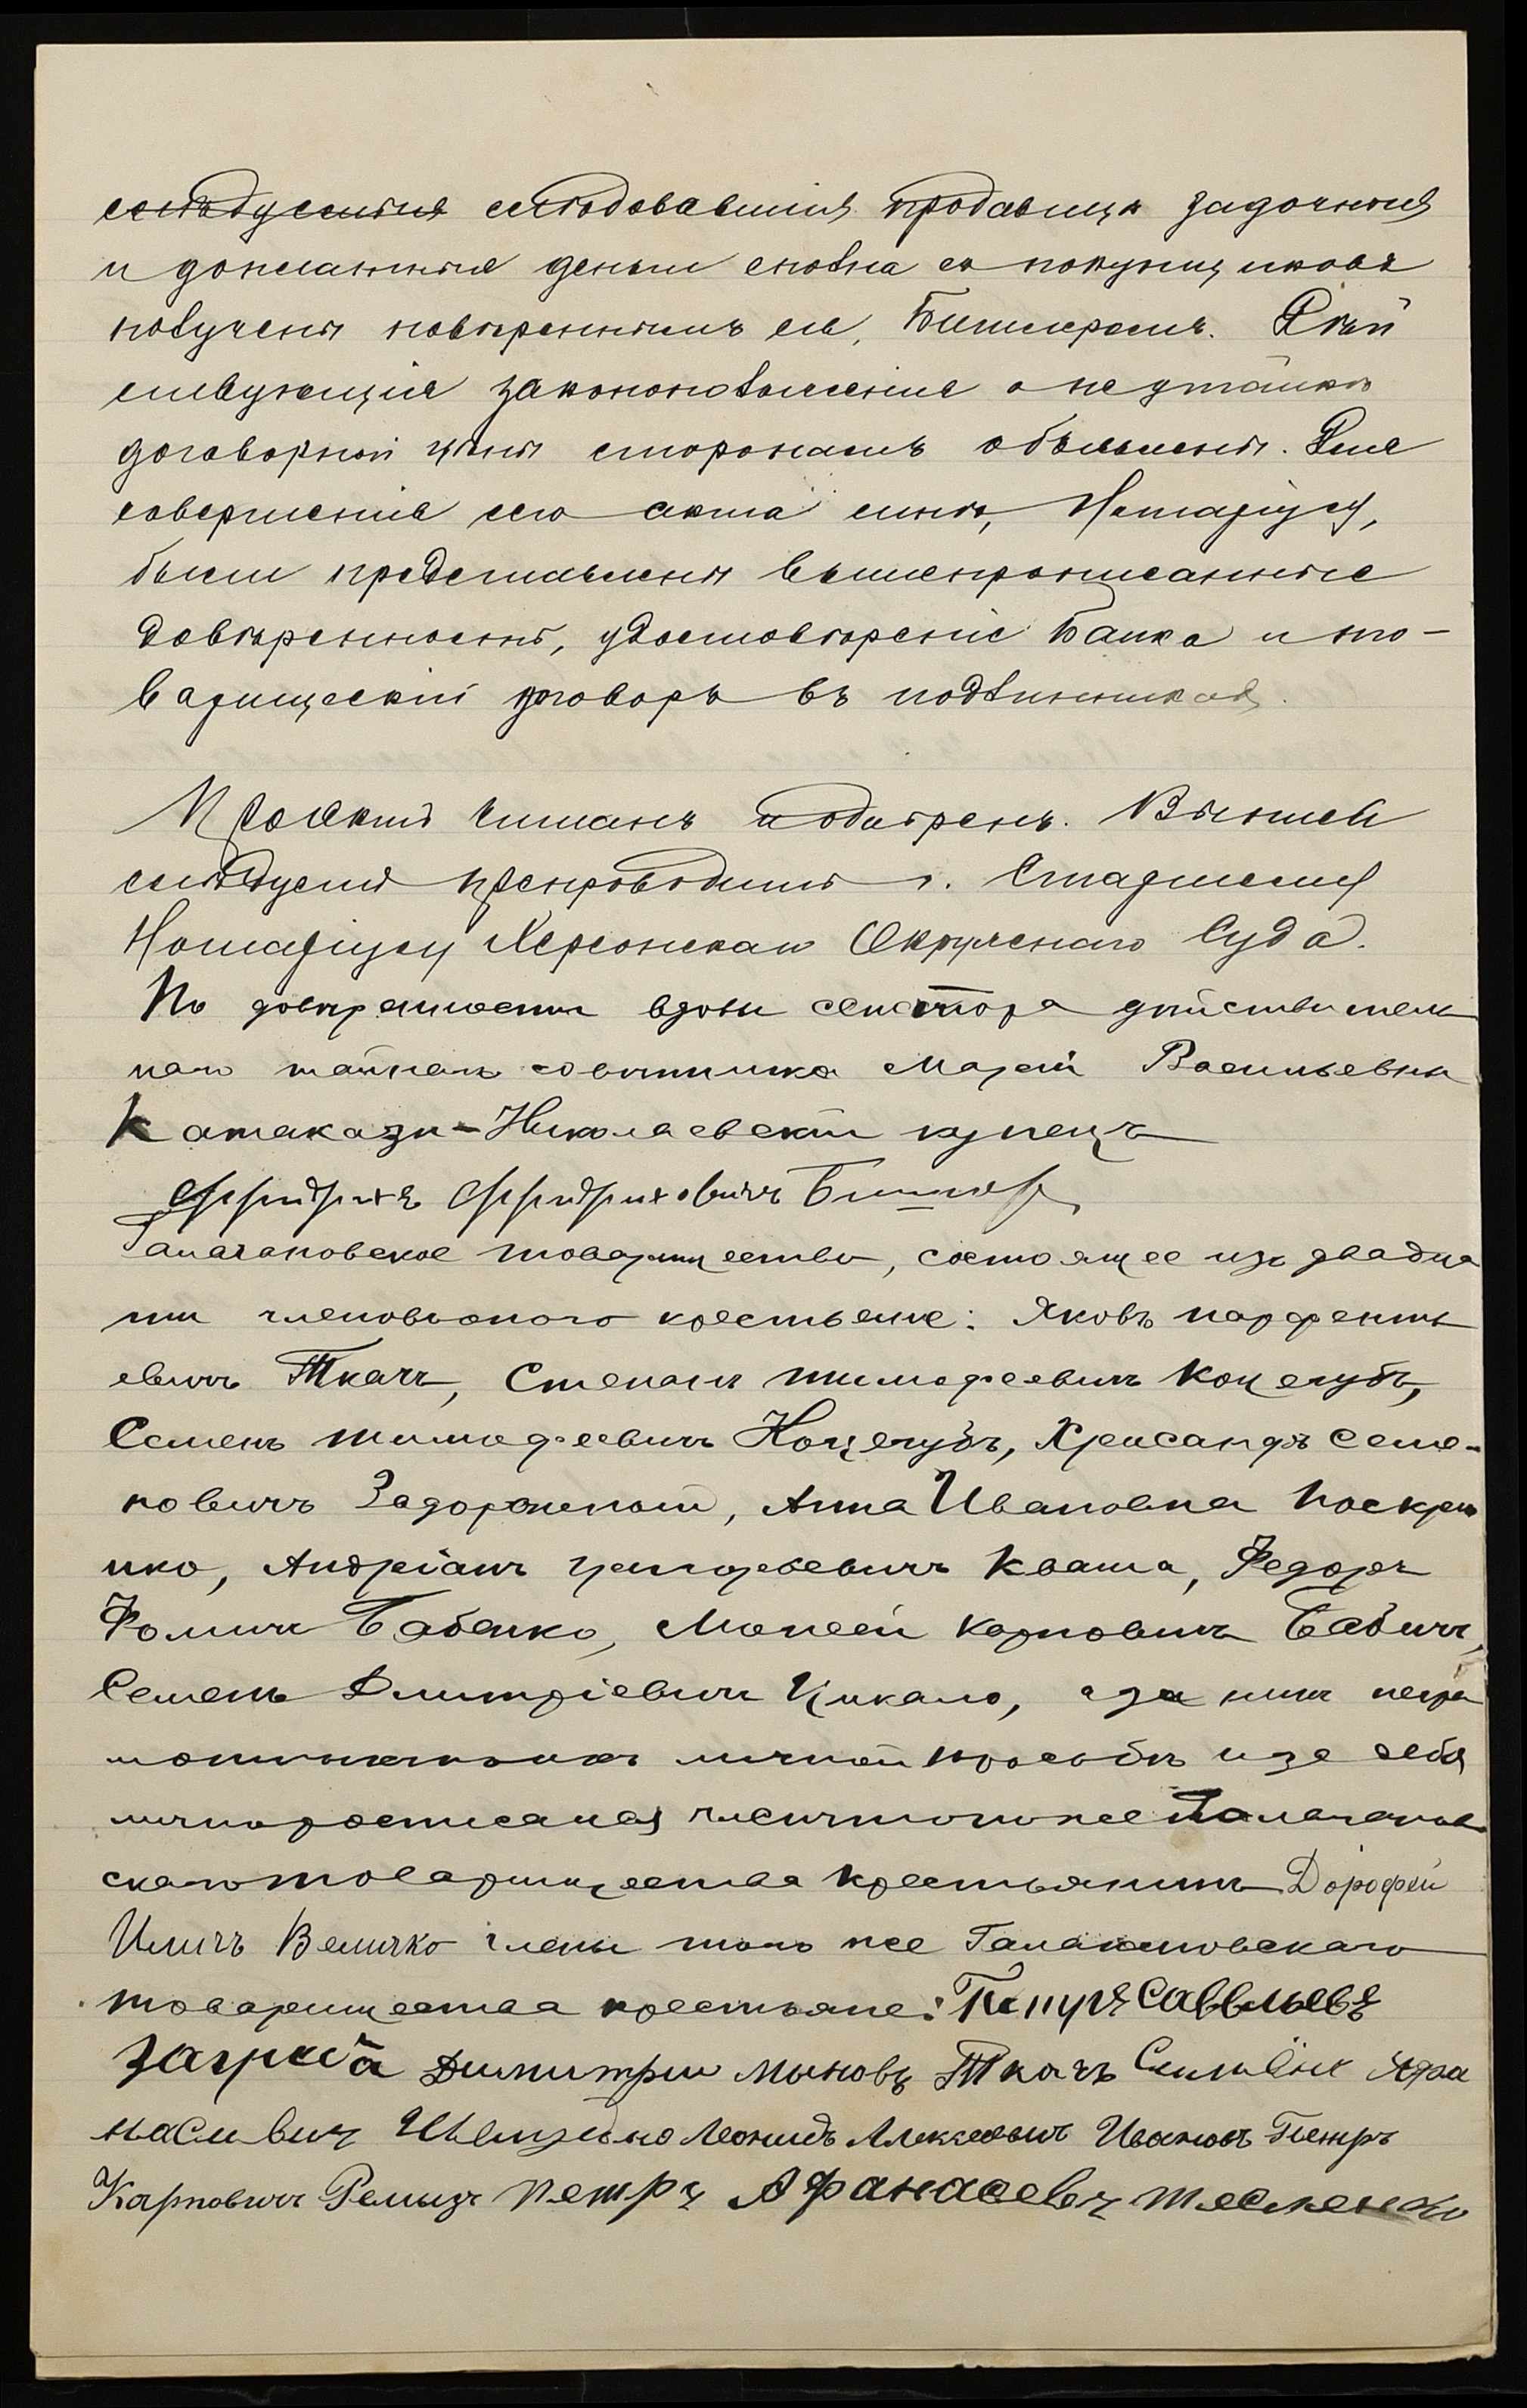 слѣдуемыя слѣдовавшія продавицѣ задаточныя
и донесанныя деньги сполна съ покупщиковъ
получены повѣреннымъ ея, Бишлеромъ. Дѣй
ствующія законоположенія о неутайкѣ
договорной цѣны сторонамъ объявлены. Для
совершенія сего акта мнѣ, Нотаріусу,
были представлены вышепрописанныя
довѣренность, удостовѣреніе Банка и то-
варищескій договоръ въ подлинникахъ.
Проектъ читанъ и одобренъ. Выпись
слѣдуетъ препроводить г. Старшему
Нотаріусу Херсонскаго Окружнаго Суда.
По довѣренности вдовы сенатора дѣйствитель
наго тайнаго совѣтника Маріи Васильевны
Катакази-Николаевскій купецъ
Фридрихъ Фридриховичъ
Галагановское товарищество, состоящее изъ двадца
ти членовъ онаго крестьяне: Яковъ Парфенть
евичъ Ткачъ, Степанъ Тимофеевичъ Коцегубъ,
Семенъ Тимофеевичъ Коцегубъ, Хрисандъ Семе-
новичъ Задорожный, Анна Ивановна Поскри
пко, Андріанъ Григорьевичъ Кваша, Федоръ
Фомичъ Бабенко, Моисей Карповичъ Бабичъ,
Семенъ Дмитріевичъ Цикало, а за нихъ негра
мотныхъ по ихъ личной просьбѣ и за себя
лично росписался членъ того же Галаганов
скаго товарищества крестьянинъ Дорофей
Иличъ Величко члены того же Галагановскаго
товарищества крестьяне: Петръ Савельевъ
Загры Димитри Мыновъ Ткачъ Симіёнъ Афа
насивич Леонидъ Алексеевичъ Ивановъ Петръ
Карповичъ Ремызъ Петръ Афанасевъ Тесленко